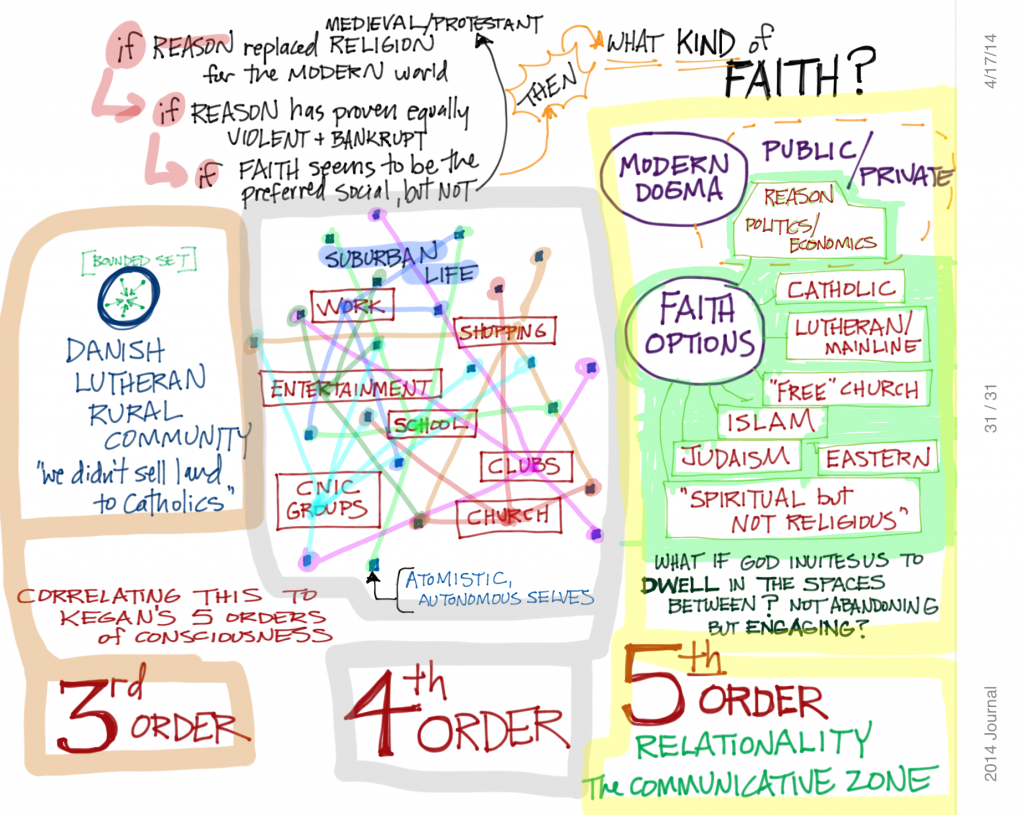 MEDIEVAL/PROTESTANT
if REASON replaced RELIGION
for the MODERN world
if REASON has proven equally
VIOLENT + BANKRUPT
if FAITH seems to be the
preferred social, but NOT
THEN
WHAT KIND of
FAITH?
4/17/14
31 / 31
2014 Journal
[BOUNDED SET]
DANISH
LUTHERAN
RURAL
COMMUNITY
"we didn't sell land
to Catholics"
CORRELATING THIS TO
KEGAN'S 5 ORDERS
of CONSCIOUSNESS
3rd
ORDER
SUBURBAN
LIFE
WORK
SHOPPING
ENTERTAINMENT
SCHOOL
CLUBS
CIVIC
GROUPS
CHURCH
ATOMISTIC,
AUTONOMOUS SELVES
4th
ORDER
MODERN
DOGMA
PUBLIC/
PRIVATE
REASON
POLITICS/
ECONOMICS
FAITH
OPTIONS
CATHOLIC
LUTHERAN/
MAINLINE
"FREE" CHURCH
ISLAM
JUDAISM
EASTERN
"SPIRITUAL but
NOT RELIGIOUS"
WHAT IF GOD INVITES US TO
DWELL IN THE SPACES
BETWEEN? NOT ABANDONING
BUT ENGAGING?
5th
ORDER
RELATIONALITY
The COMMUNICATIVE ZONE